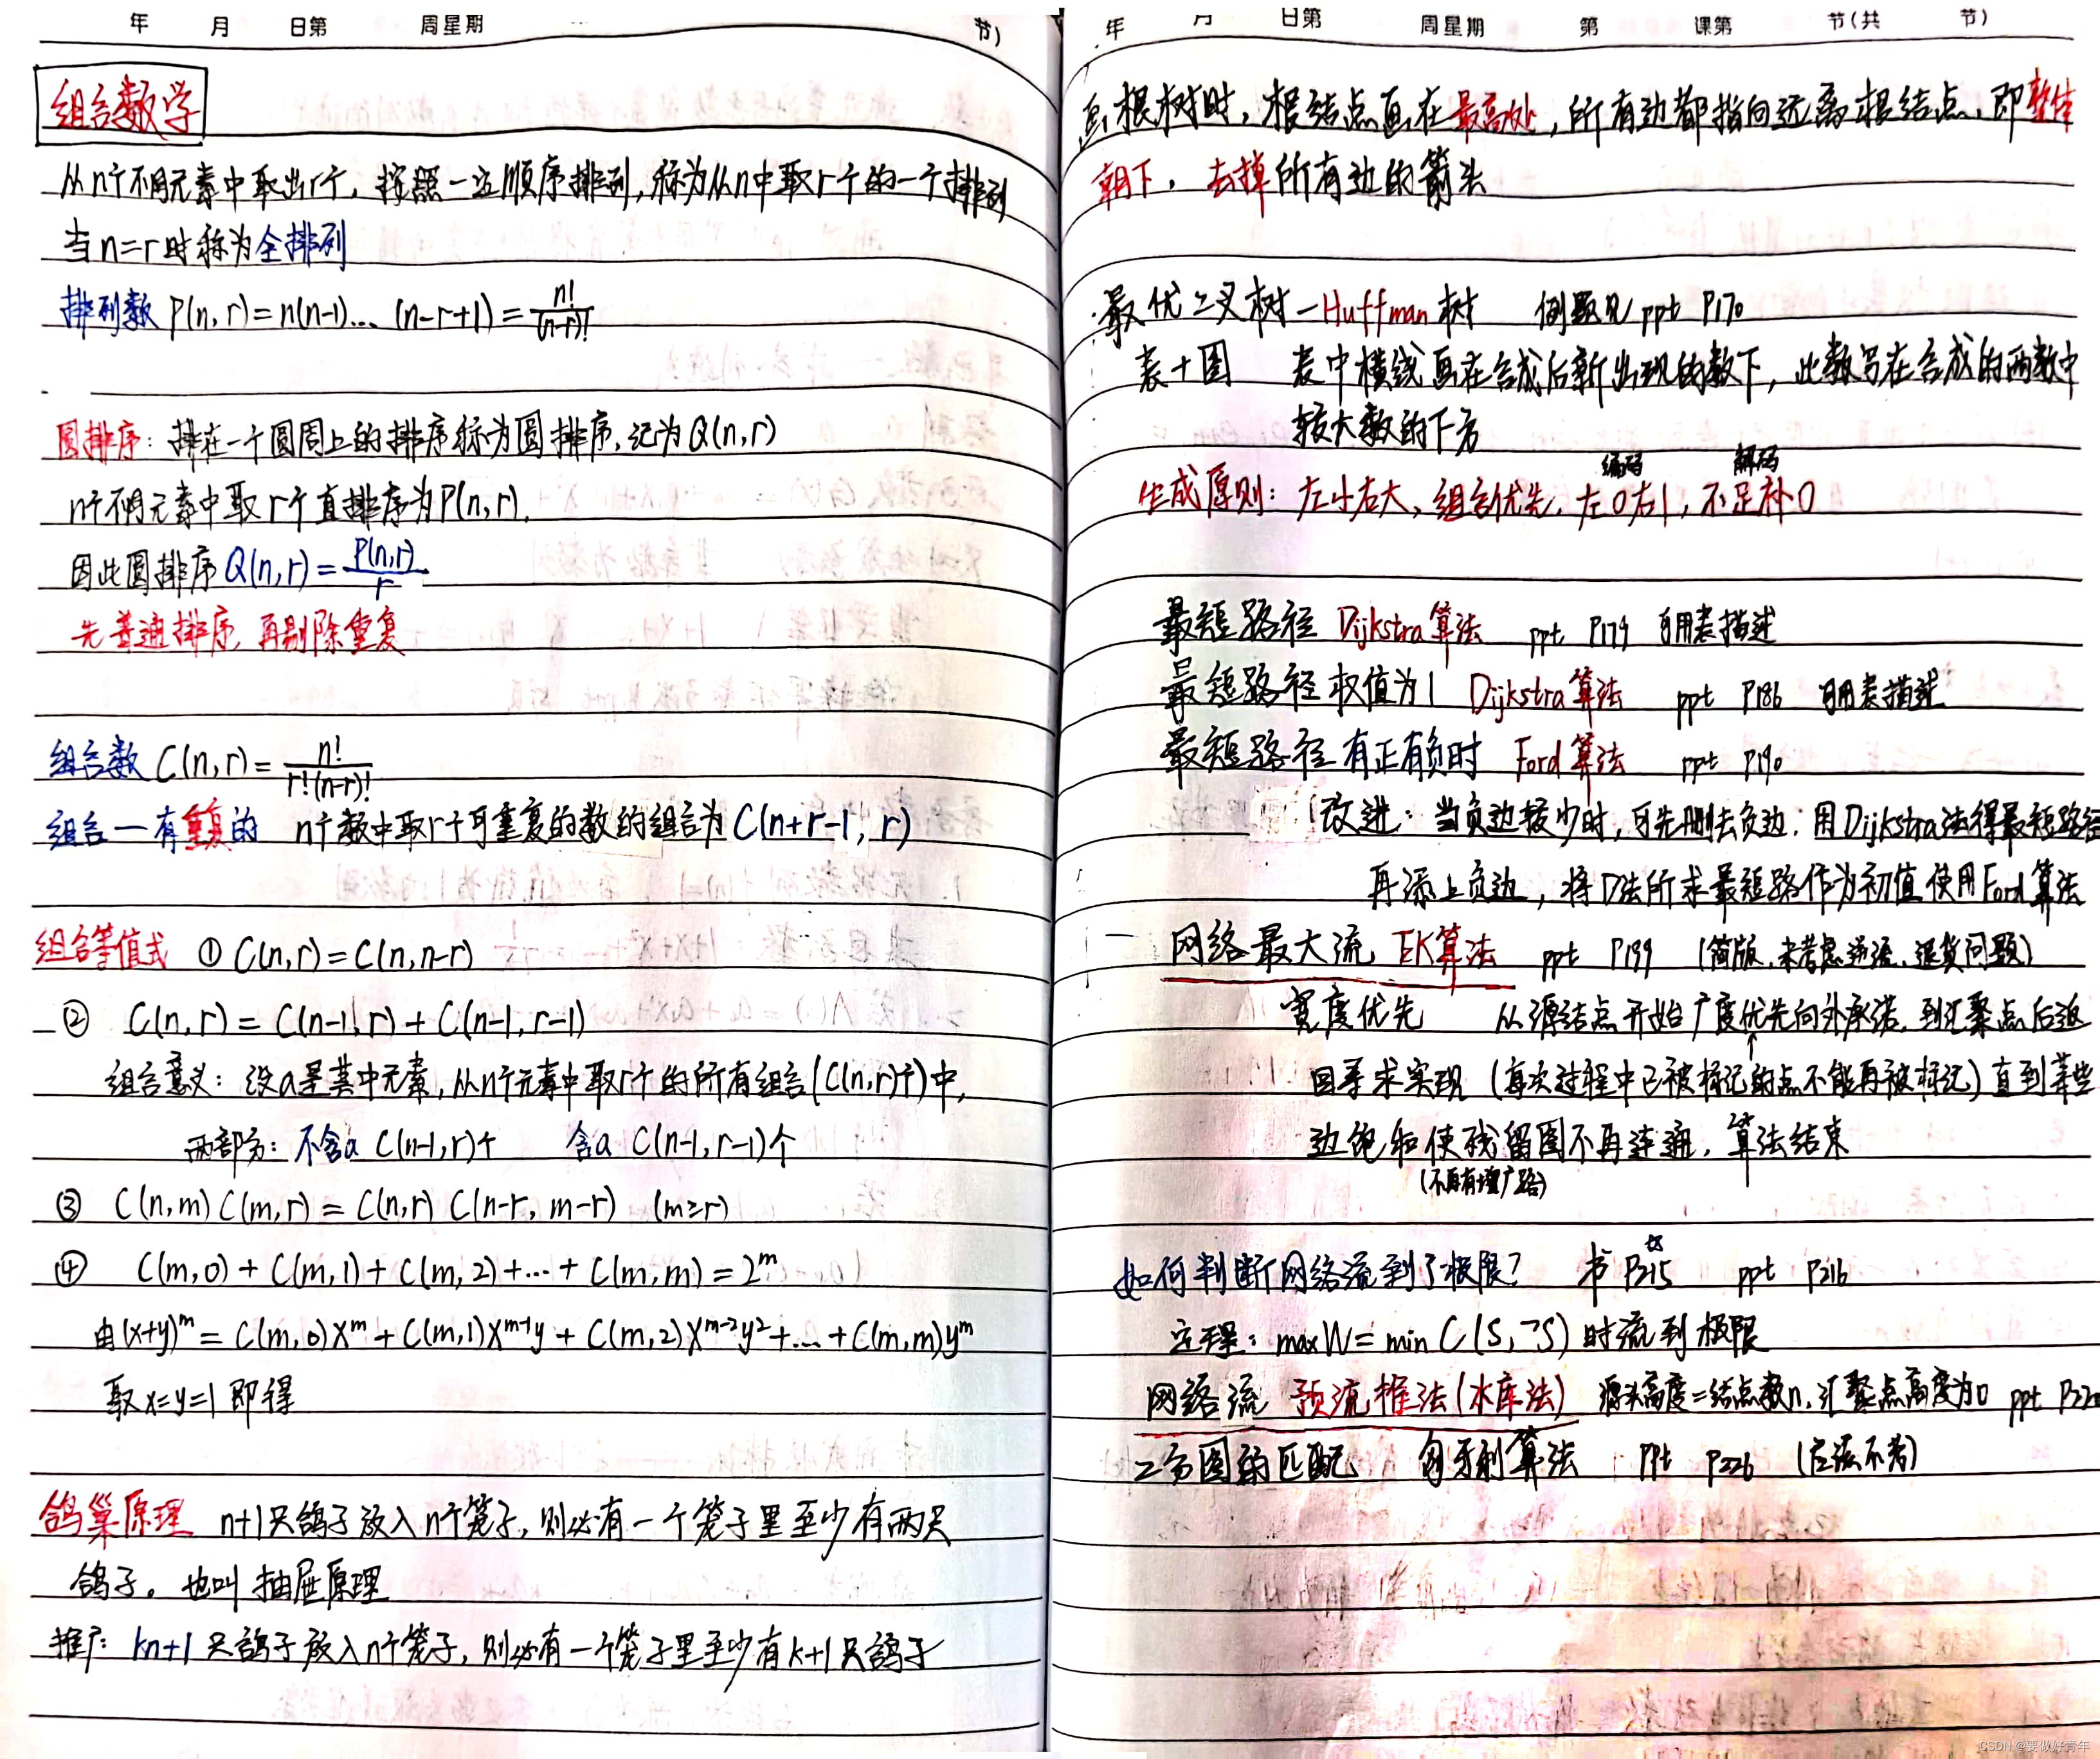 年 月 日第 周星期 节)
组合数学
从n个不同元素中取出r个，按照一定顺序排列，称为从n中取r个的一个排列
当n=r时称为全排列
排列数 P(n,r)=n(n-1)… (n-r+1)=n!/(n-r)!
圆排序：排在一个圆周上的排序称为圆排序，记为Q(n,r)
n个不同元素中取r个直排序为P(n,r).
因此圆排序Q(n,r)=P(n,r)/r
先普通排序，再剔除重复
组合数 C(n,r)=n!/r!(n-r)!
组合—有重复的 n个数中取r个可重复的数的组合为C(n+r-1, r)
组合等值式 ① C(n,r)=C(n,n-r)
② C(n,r)=C(n-1,r)+C(n-1,r-1)
组合意义：设a是其中元素，从n个元素中取r个的所有组合(C(n,r)个)中，
两部分：不含a C(n-1,r)个 含a C(n-1,r-1)个
③ C(n,m)C(m,r)=C(n,r)C(n-r, m-r) (m≥r)
④ C(m,0)+C(m,1)+C(m,2)+…+C(m,m)=2^m
由(x+y)^m=C(m,0)x^m+C(m,1)x^(m-1)y+C(m,2)x^(m-2)y²+…+C(m,m)y^m
取x=y=1即得
鸽巢原理 n+1只鸽子放入n个笼子，则必有一个笼子里至少有两只
鸽子。也叫抽屉原理
推广：kn+1只鸽子放入n个笼子，则必有一个笼子里至少有k+1只鸽子
年 月 日第 周星期 第 课第 节(共 节)
画根树时，根结点画在最高处，所有边都指向远离根结点，即整体
朝下，去掉所有边的箭头
最优二叉树—Huffman树 例题见ppt P170
表+图 表中横线画在合成后新出现的数下，此数写在合成的两数中
较大数的下方
编码 解码
生成原则：左小右大，组合优先，左0右1，不足补0
最短路径 Dijkstra算法 ppt P179 可用表描述
最短路径 权值为1 Dijkstra算法 ppt P186 可用表描述
最短路径 有正有负时 Ford算法 ppt P190
改进：当负边较少时，可先删去负边；用Dijkstra法得最短路径
再添上负边，将D法所求最短路作为初值使用Ford算法
网络最大流 EK算法 ppt P199 (简版，未考虑逆流，退货问题)
宽度优先 从源结点开始广度优先向外承诺，到汇聚点后返
回寻求实现 (每次过程中已被标记的点不能再被标记) 直到某些
边饱和使残留图不再连通，算法结束
(不再有增广路)
如何判断网络流到了极限？ 书P215 ppt P216
定理：maxW=min C(S,¬S)时流到极限
网络流 预流推法(水库法) 源头高度=结点数n，汇聚点高度为0 ppt P220
二分图的匹配 匈牙利算法 ppt P226 (应该不考)
CSDN @要做好青年